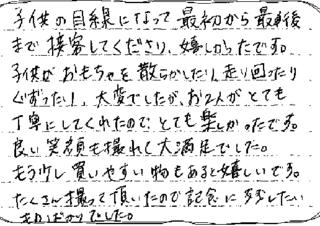 子供の目線になって最初から最後
まで接客してくださり、嬉しかったです。
子供がおもちゃを散らかしたり走り回ったり
ぐずったり、大変でしたが、お2人がとても
丁寧にしてくれたので、とても楽しかったです。
良い笑顔も撮れて大満足でした。
もう少し買いやすい物もあると嬉しいです。
たくさん撮って頂いたので記念に
ばかりでした。